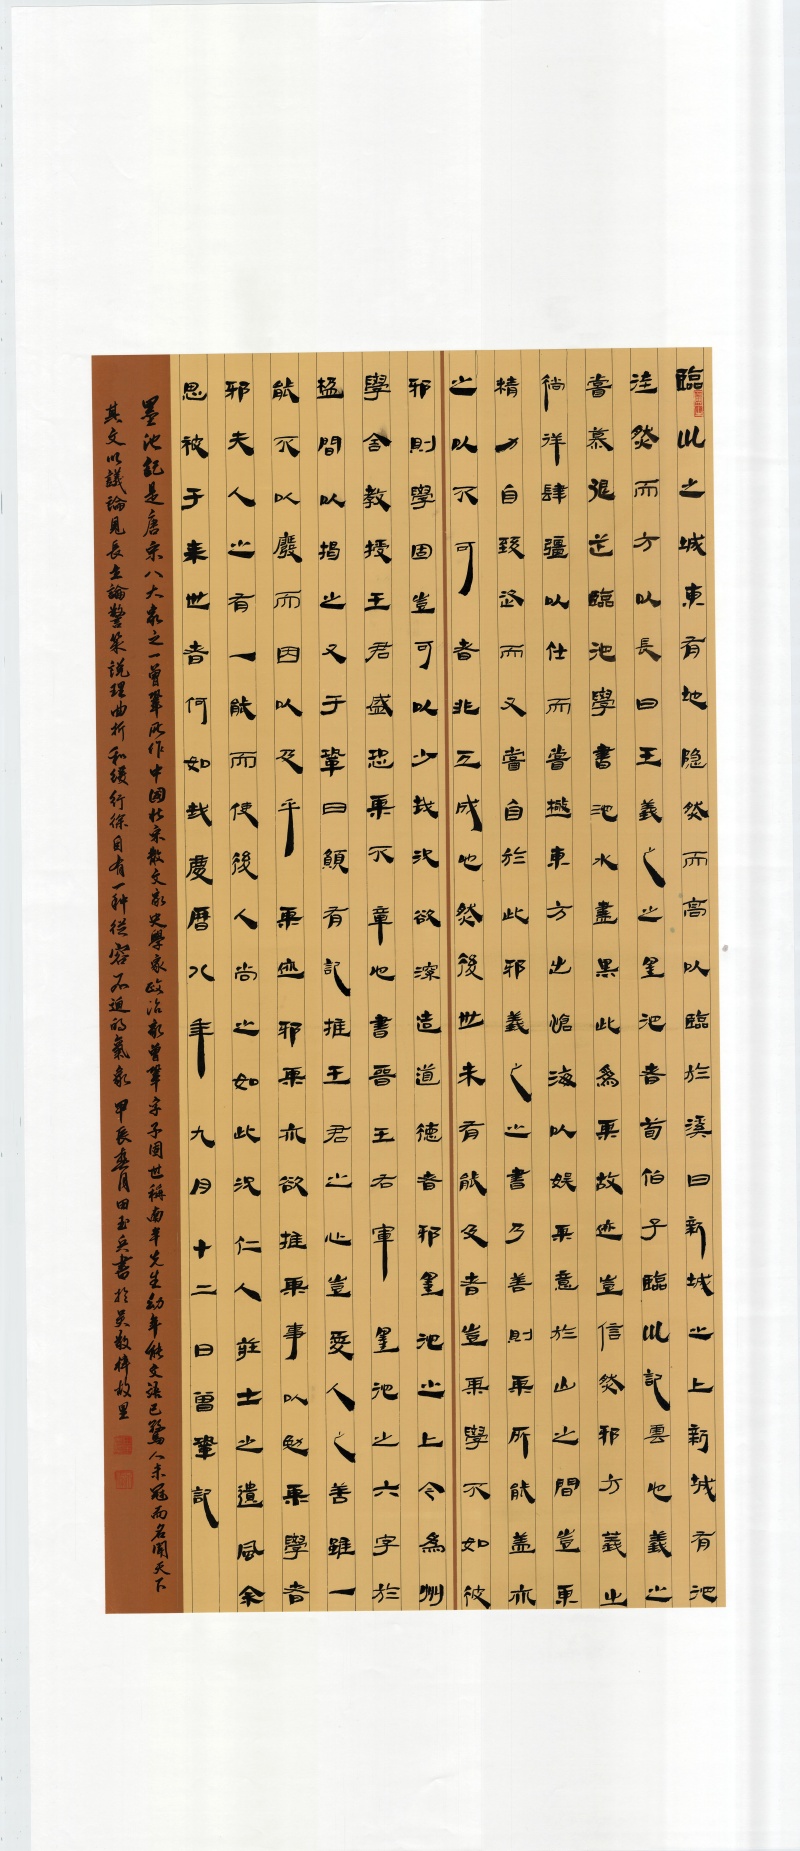 臨川之城東有地隱然而高以臨於溪曰新城之上新城有池
洼然而方以長曰王羲之之墨池者荀伯子臨川記雲也羲之
嘗慕張芝臨池學書池水盡黑此為其故迹豈信然邪方羲之
徜徉肆疆以仕而嘗極東方出滄海以娛其意於山之間豈其
精力自致恣而又嘗自於此邪羲之之書乃善則其所能蓋亦
之以不可者非天成也然後世未有能及者豈其學不如彼
邪則學固豈可以少哉況欲深造道德者邪墨池之上今為州
學舍教授王君盛恐其不章也書晉王右軍墨池之六字於
楹間以揭之又于鞏曰願有記推王君之心豈愛人之善雖一
能不以廢而因以及乎其迹邪其亦欲推其事以勉其學者
邪夫人之有一能而使後人尚之如此況仁人莊士之遺風余
思被于來世者何如哉慶曆八年九月十二日曾鞏記
墨池記是唐宋八大家之一曾鞏所作中國北宋散文家史學家政治家曾鞏字子固世稱南丰先生幼年能文語已驚人未冠而名聞天下
其文以議論見長立論警策說理曲折和緩行徐自有一种從容不迫的氣象甲辰春月田玉兵書於吳敬梓故里